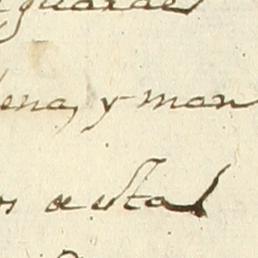 guardes
ena, y man
os a esta